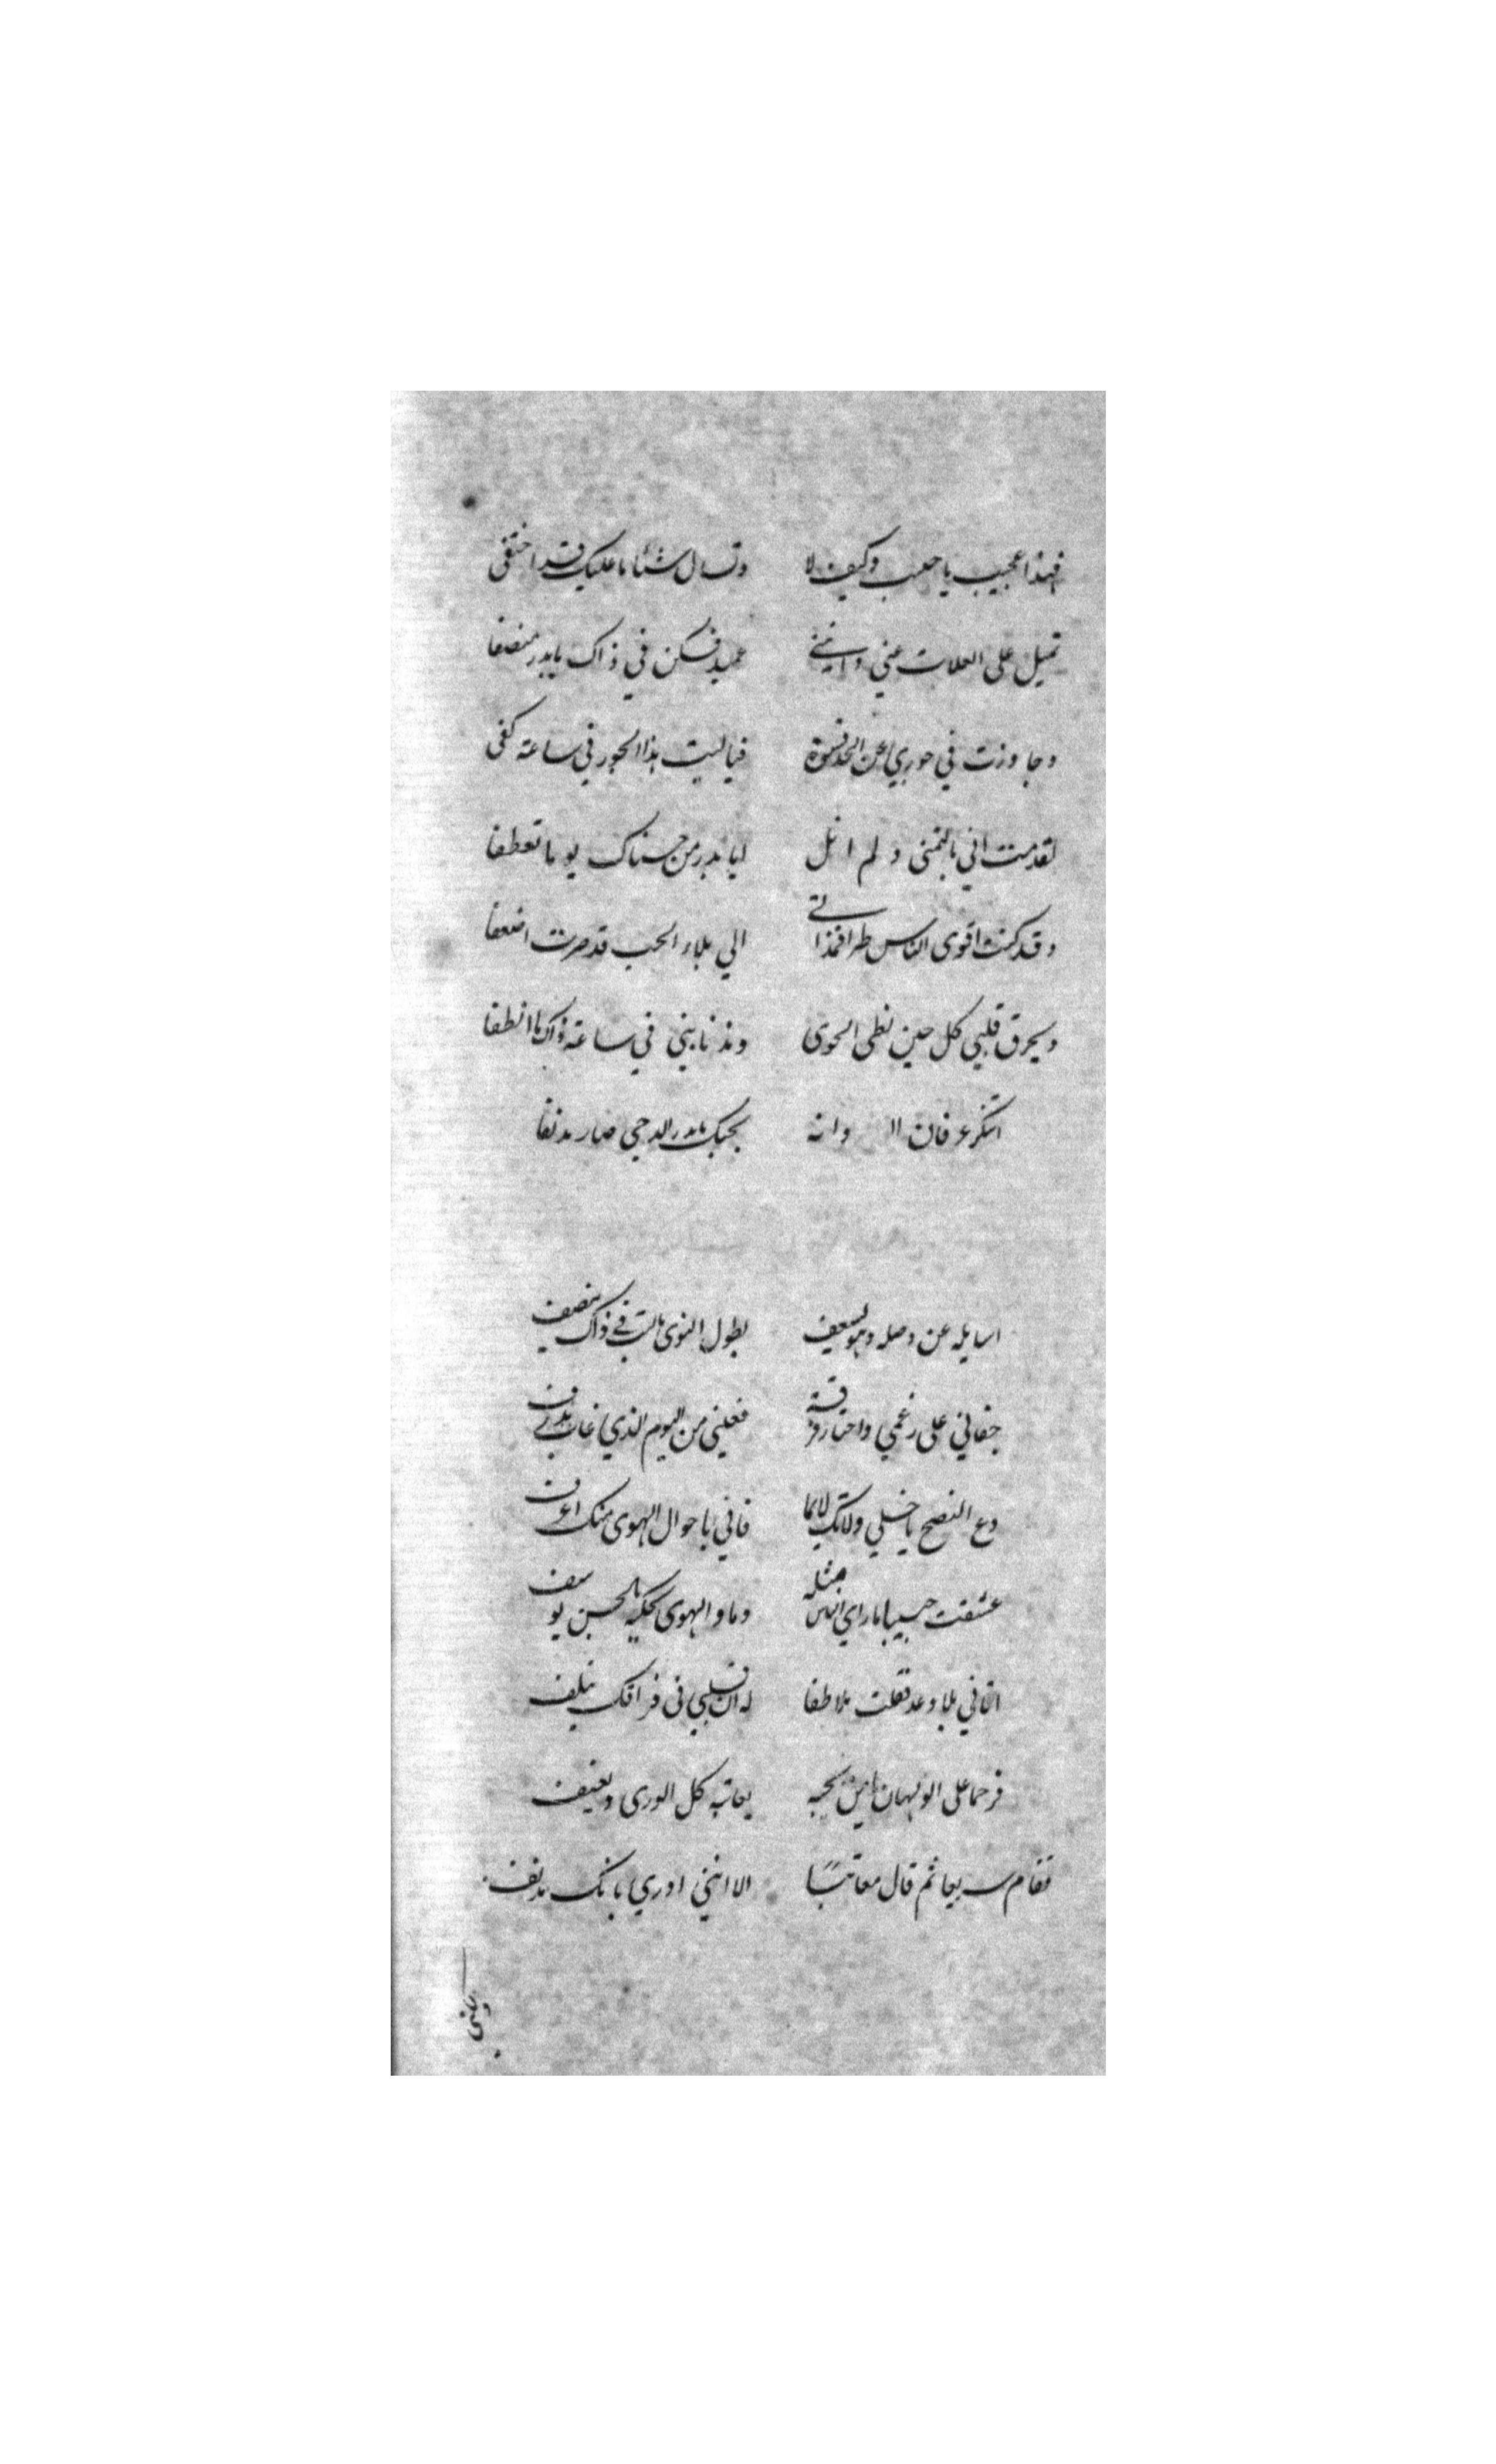 فهذا عجيب يا حبيب وكيف لا وتسال شئا ما عليك قد اختفى
تميل على العلات عني وانني عميد فكن في ذاك يا بدر منصفا
وجاوزت في جوري عن الحد قسوة فيا ليت هذا الجور في ساعة كفى
لقد مت اني بالتمنى ولم انل ايا بدر من حسناك يوما تعطفا
وقد كنت اقوى الناس طرا فمذ اتى الي بلاء الحب قد صرت اضعفا
ويحرق قلبي كل حين لظى الجوى ومذ نابني في ساعة ذاك ما انطفا
اتنكر عرفان وانه بحبك يا بدر الدجى صار مدنفا
اسايله عن وصله وهو يسعف بطول النوى ياليت في ذاك ينصف
جفاني على رغمي واختار فرقة فعيني من اليوم الذي غاب تذرف
دع النصح يا خلي ولا تك لايما فاني باحوال الهوى منك اعرف
عشقت حبيبا ما راى الناس مثله وما والهوى يحكيه بالحسن يوسف
اتاني بلا وعد فقلت ملاطفا له ان قلبي في فراقك يتلف
فرحما على الولهان يا من بحبه يعاتبه كل الورى ويعنف
فقام سريعا ثم قال معاتبًا الا انني ادري بانك مدنف